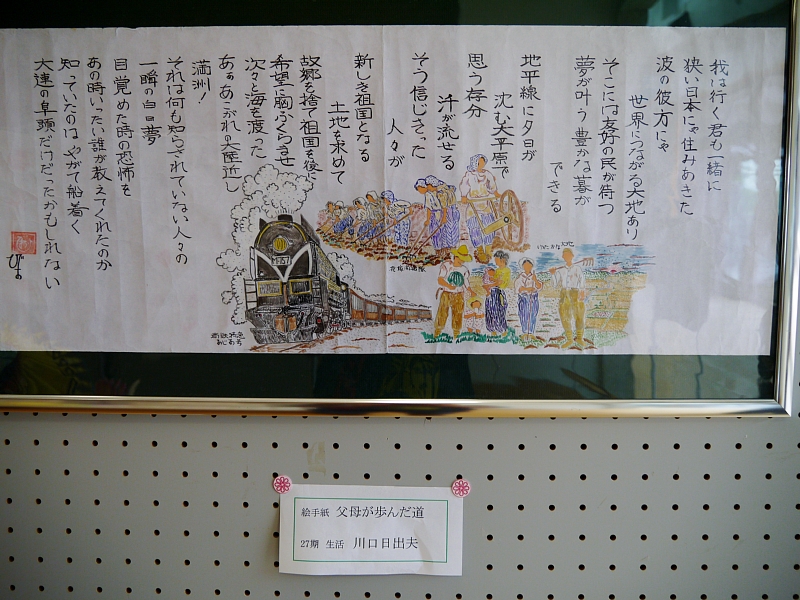 我は行く君も一緒に
狭い日本にゃ住みあきた
波の彼方にゃ
世界につながる大地あり
そこには友好の民が待つ
夢が叶う豊かな暮が
できる
地平線に夕日が
沈む大平原で
思う存分
汗が流せる
そう信じきった
人々が
新しき祖国となる
土地を求めて
故郷を捨て祖国を後に
希望に胸ふくらませ
次々と海を渡った
あぁあこがれの大陸近し
満洲!
それは何も知らされていない人々の
一瞬の白日夢
目覚めた時の恐怖を
あの時いったい誰が教えてくれたのか
知っていたのはやがて船着く
大連の阜頭だけだったかもしれない
ゆたかな大地
あじあ号
絵手紙 父母が歩んだ道
27期 生活 川口日出夫